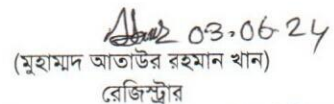 03.06.24
(মুহাম্মদ আতাউর রহমান খান)
রেজিস্ট্রার